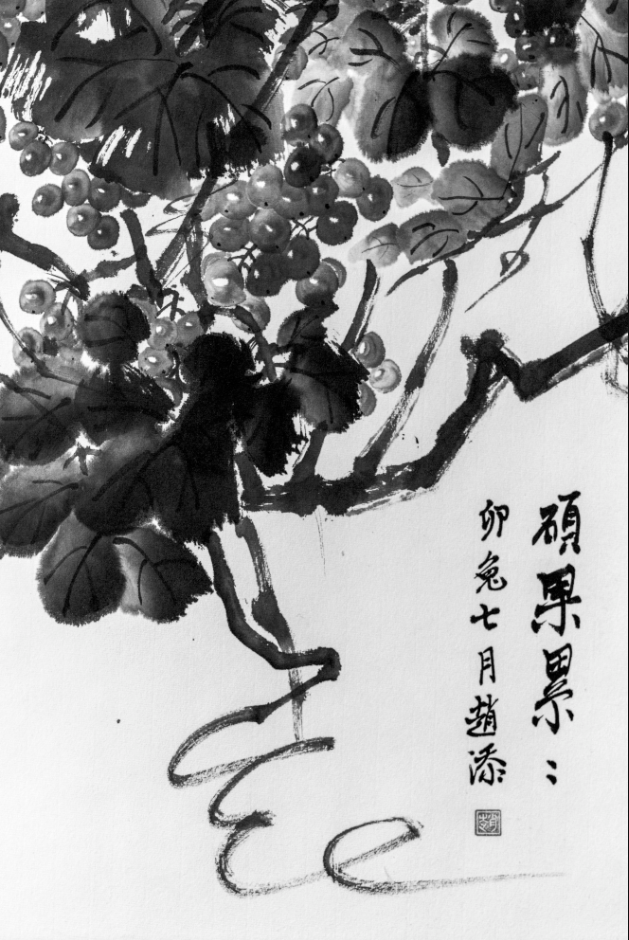 碩果累〻
卯兔七月趙添